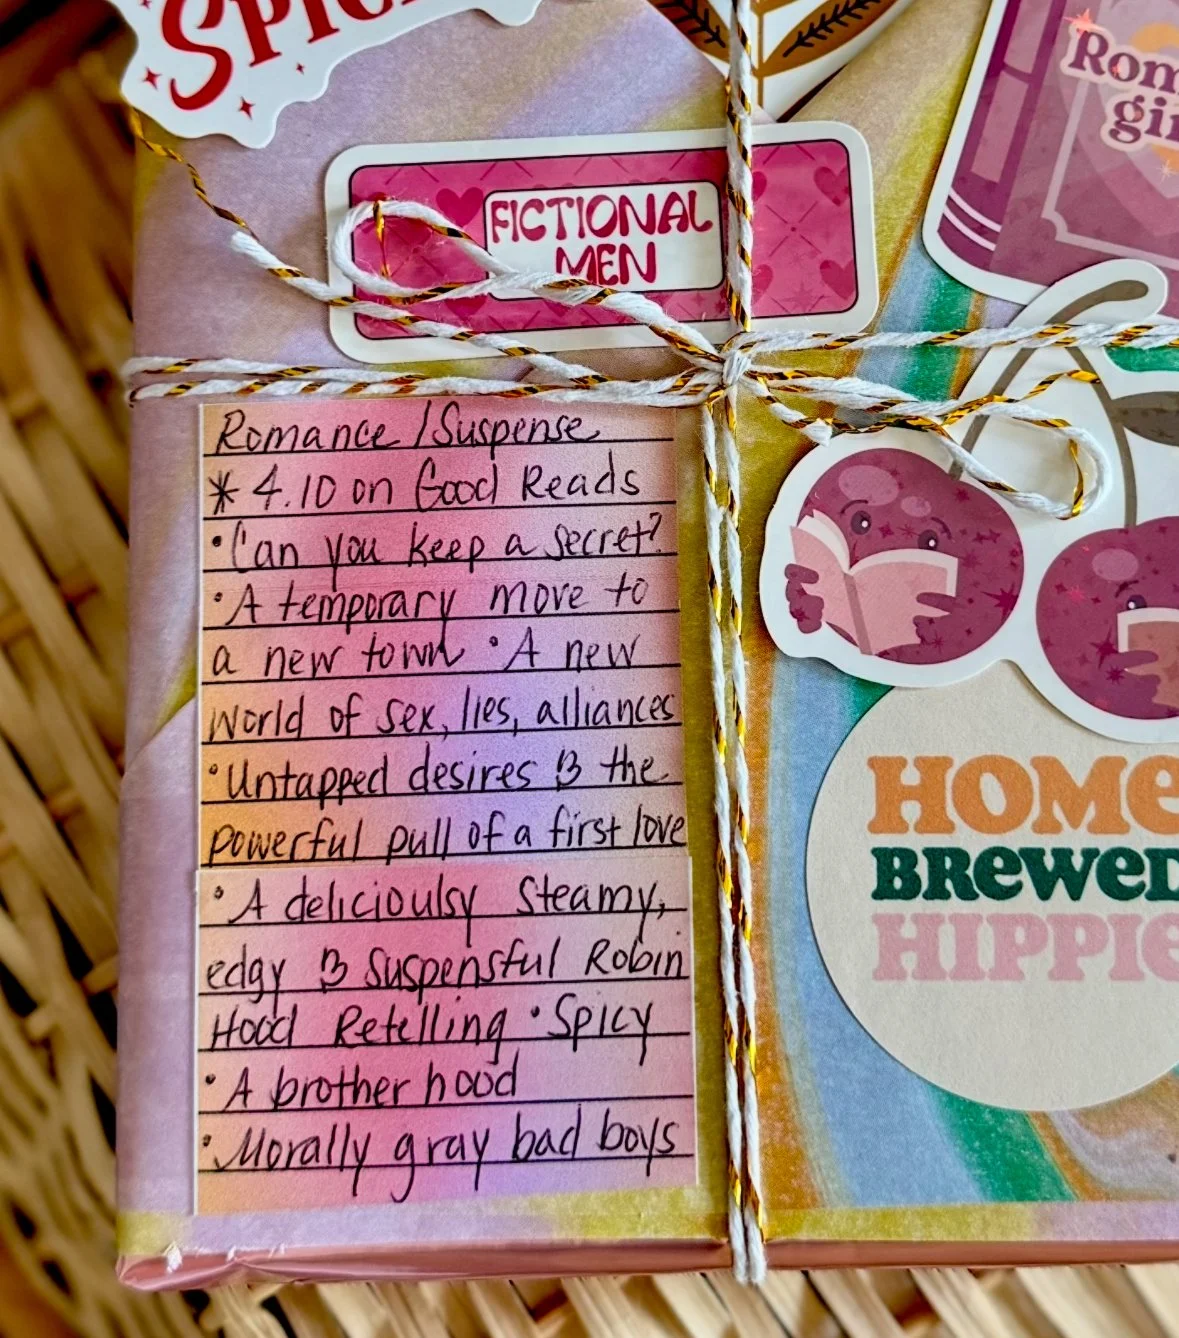 SPIC
Rom
gi
FICTIONAL
MEN
Romance / Suspense
* 4.10 on Good Reads
• Can you keep a secret?
• A temporary move to
a new town • A new
world of sex, lies, alliances
• Untapped desires & the
powerful pull of a first love
• A delicioulsy Steamy,
edgy & Suspensful Robin
Hood Retelling • Spicy
• A brother hood
• Morally gray bad boys
HOME
BREWED
HIPPIE